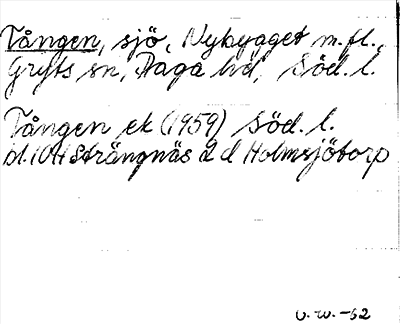 Tången, sjö, Nybygget m.fl.,
Gryts sn, Daga hd, Söd. l.
Tången ek (1959) Söd. l.
bl. 10H Strängnäs 2 d Holmsjötorp
v.w. -62